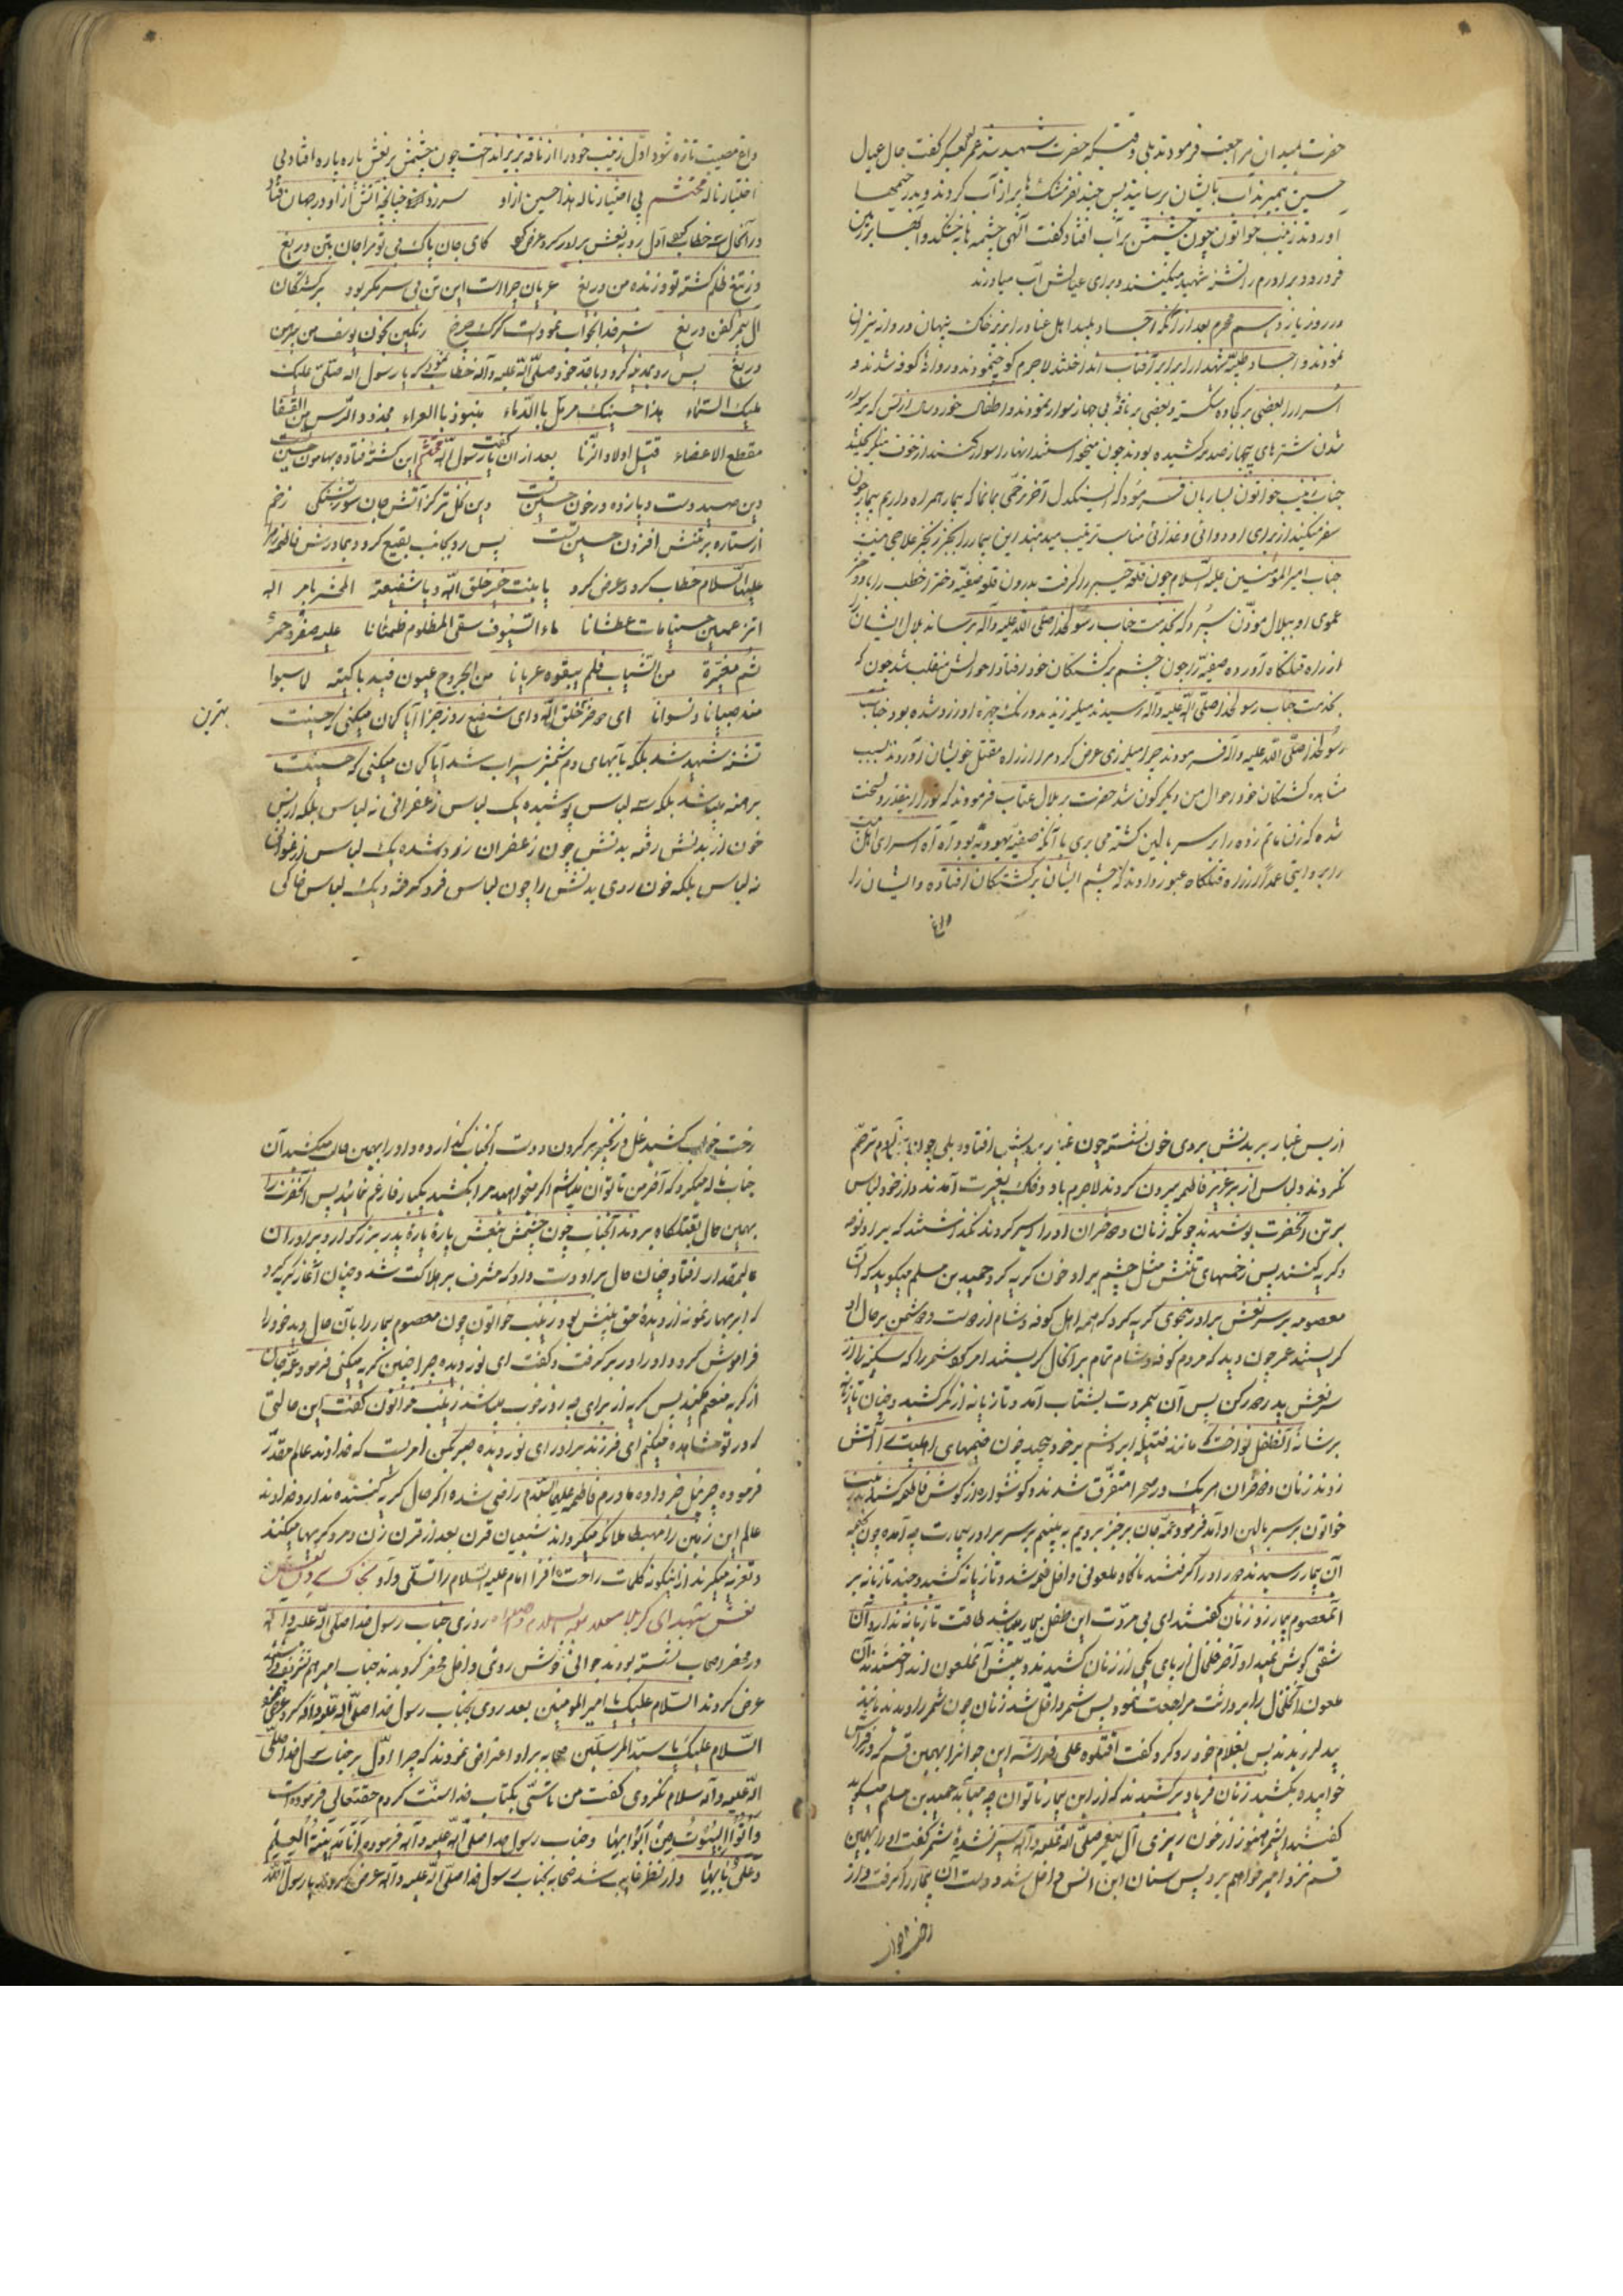 حضرت بمیدان مراجعت فرمودند بلی وقتیکه حضرت شهید شد عمر لعین گفت حال عیال
حسین بمیرند آب بایشان برسانید پس چند نفر مشکها پر از آب کردند و بدر خیمها
آوردند زینب خواتون چون چشمش بر آب افتاد گفت الهی چشمه ها بخشکد و آبها بزمین
فرو رود برادرم را تشنه شهید میکنند و برای عیالش آب میاورند
در روز یازدهم محرم بعد از آنکه اجساد پلید اهل عناد را بزیر خاک پنهان
نمودند و اجساد طیبه شهدا را برابر آفتاب انداختند لاجرم کوچ نمودند و روانه کوفه شدند و
اسرا را بعضی بر کجاوه شکسته و بعضی بر ناقه بی جهاز سوار نمودند و اطفال خورد سال از بس که بر سوار
شدن شترهای بیجهاز صدمه کشیده بودند چون میخواستند انها را سوار کنند از خوف
جناب زینب خواتون بساربان فرمود که ای سنکدل آخر رحمی بما نما که بیمار همراه داریم بیمار چون
سفر میکند از برای او دوائی و غذائی مناسب ترتیب میدهند این بیمار را بجز زنجیر علاجی نیست
جناب امیر المؤمنین علیه السلام چون قلعه خیبر را گرفت بدرون قلعه صفیه دختر اخطب را با دختر
عموی او ببلال مؤذن سپرد که بخدمت جناب رسولخدا صلی الله علیه وآله برساند بلال ایشان
از راه قتلکاه آورده صفیه را چون چشم بر کشتکان خود افتاد احوالش منقلب شد چون که
بخدمت جناب رسولخدا صلی الله علیه وآله رسیدند میلرزیدند و رنک چهره او زرد شده بود جناب
رسولخدا صلی الله علیه وآله فرمودند چرا میلرزی عرض کرد مرا از راه مقتل خویشان آوردند بسبب
مشاهده کشتکان خود احوال من دیکر کون شد حضرت بر بلال عتاب فرمودند که تو را اینقدر دل سخت
شده که زن ماتم زده را بر سر بالین کشته می بری با آنکه صفیه یهودیه بود آه آه اسرای اهل بیت
را بروایتی عمدا از راه قتلکاه عبور دادند که چشم ایشان بر کشتکان افتاده و ایشان را
داغ
داغ مصیبت تازه شود اول زینب خود را از ناقه بزیر انداخت چون چشمش بر نعش پاره پاره افتاد بی
اختیار ناله محتشم بی اختیار ناله هذا حسین از او سر زد چنانچه آتش از او در جهان فتاد
در آنحال سه خطاب کرد اول رو به نعش برادر کرد عرض کرد کای جان پاک بی تو مرا جان بتن دریغ
از تیغ ظلم کشته تو و زنده من دریغ عریان چراست این تن بی سر مکر بود بر کشتکان
ال پیمبر کفن دریغ شیر خدا بخواب نمودست کرک چرخ رنکین بخون یوسف من پیرهن
دریغ پس رو بمدینه کرد و با جد خود صلی الله علیه وآله خطاب نمود که یا رسول الله صلی علیک
ملیک السماء هذا حسینک مرمل بالدماء منبوذ بالعراء مجذوذ الرأس من القفا
مقطع الاعضاء قتیل اولاد الزنا بعد از ان گفت یا رسول الله محتشم این کشته فتاده بهامون حسین تست
وین صید دست و پا زده در خون حسین تست وین نخل تر کز آتش جان سوز تشنکی زخم
از ستاره بر تنش افزون حسین تست پس رو بجانب بقیع کرد و بمادرش فاطمه زهرا
علیها السلام خطاب کرد و عرض کرد یا بنت خیر خلق الله و یا شفیعة المحشر بامر اله
اتزعمین حسینا مات عطشانا ماء السیوف سقی المظلوم ظمئانا علیه صفر و حمر
ثم مغبرة من الثیاب فلم یبقوه عریانا من الجروح عیون فیه باکیة لا سبوا
منه صبیانا و نسوانا ای دختر بهترین خلق الله و ای شفیع روز جزا آیا کمان میکنی که حسینت
تشنه شهید شد بلکه بآبهای دم شمشیر سیراب شد آیا کمان میکنی که حسینت
برهنه میباشد بلکه سه لباس پوشیده یک لباس زعفرانی نه لباس بلکه از بس
خون از بدنش رفته بدنش چون زعفران زرد شده یک لباس ارغوانی
نه لباس بلکه خون روی بدنش را چون لباس فرو گرفته و یک لباس خاکی
بهترین
از بس غبار بر بدنش بروی خون نشسته چون غبار بر رویش افتاده بلی چون بنی آدم ترحم
نکردند و لباس از بر عزیز فاطمه بیرون کردند لاجرم باد و خاک بغیرت آمدند و از خود لباس
بر تن آنحضرت پوشیدند چونکه زنان و دختران او را اسیر کردند نکذاشتند که بر او نوحه
و کریه کنند پس زخمهای تنش مثل چشم بر او خون کریه کرد حمید بن مسلم میکوید که آن
معصومه بر سر نعش برادر بنحوی کریه کرد که همه اهل کوفه و شام از دوست و دشمن بر حال او
کریستند عمر چون دید که مردم کوفه و شام تمام بر آنحال کریستند امر کرد شمر را که سکینه را از
سر نعش پدر دور کن پس آن بیمروت بشتاب آمد و تازیانه از کمر کشید و چنان تازیانه
بر شانه آنطفل نواخت که مانند فتیله ابریشم بر خود پیچید چون خیمهای اهل بیت را آتش
زدند زنان و دختران هر یک در صحرا متفرق شدند و کوشواره از کوش فاطمه کشیدند زینب
خواتون بر سر بالین او آمد فرمود عمه جان برخیز برویم به بینیم بر سر برادر بیمارت چه آمده چون بخیمه
آن بیمار رسیدند دور او را کرفتند ناکاه ملعونی داخل خیمه شد و تازیانه کشید و چند تازیانه بر
آنمعصوم بیمار زد زنان کفتند ای بی مروت این طفل بیمار میباشد طاقت تازیانه ندارد آن
شقی کوش نمیداد آخر خلخال از پای یکی از زنان کشیدند و پیش آنملعون انداختند آن
ملعون خلخال را برداشت مراجعت نمود پس شمر داخل شد زنان چون شمر را دیدند مانند
بید لرزیدند پس بغلام خود رو کرد کفت اقتلوه علی فراشه این جوانرا بهمین قسم که در فراش
خوابیده بکشید زنان فریاد بر کشیدند که از این بیمار ناتوان چه میآید حمید بن مسلم میکوید
کفتند ای شمر هنوز از خون ریزی آل پیغمبر صلی الله علیه وآله سیر نشدی شمر کفت او را بهمین
قسم نزد امیر خواهم برد پس سنان ابن انس داخل شد و دست ان بیمار را کرفت و از
رخت خواب
رخت خواب کشید غل و زنجیر بر کردن و دست آنجناب کذارده و او را بهمین حال میکشید آن
جناب ناله میکرد که آخر من ناتوان میباشم اکر میخواهید مرا بکشید یکبار فارغم نمائید پس آنحضرت را
بهمین حال بقتلکاه بردند آنجناب چون چشمش بنعش پارهٔ پارهٔ پدر بزرکوار و برادران
عالیمقدار افتاد چنان حال بر او دست داد که مشرف بر هلاکت شد و چنان آغاز کریه کرد
که ابر بهار نمونه از دیدهٔ حق بینش بود زینب خواتون چون معصوم بیمار را بآن حال دید خود را
فراموش کرد و او را در بر کرفت و کفت ای نور دیده چرا چنین کریه میکنی فرمود عمه جان
از کریه منعم مکنید پس کریه از برای چه روز خوب میباشد زینب خواتون کفت این حالتی
که در تو مشاهده میکنم ای فرزند برادر ای نور دیده صبر بکن امریست که خداوند عالم مقدر
فرموده جبرئیل خبر داده مادرم فاطمه علیها السلام راضی شده اکر حال کریه کننده ندارد خداوند
عالم این زمین را مهبط ملائکه میکرداند شیعیان قرن بعد از قرن زن و مرد کریها میکنند
و تعزیه میکیرند از اینکونه کلمات راحت افزا امام علیه السلام را تسلی داد
نعش شهدای کربلا روزی جناب رسول خدا صلی الله علیه وآله
در محضر صحاب نشسته بودند جوانی خوش روئی داخل محضر کردید جناب امیر هم تشریف داشتند
عرض کردند السلام علیک یا امیر المومنین بعد روی بجناب رسول خدا صلی الله علیه وآله کرد عرض نمود
السلام علیک یا سید المرسلین صحابه بر او اعتراض نمودند که چرا اول بر جناب رسول خدا صلی
الله علیه وآله سلام نکردی کفت من تاسی بکتاب خدا و سنت کردم حقتعالی فرموده است
وأتوا البیوت من ابوابها و جناب رسول خدا صلی الله علیه وآله فرموده انا مدینة العلم
وعلی بابها و از نظر غایب شد صحابه بجناب رسول خدا صلی الله علیه وآله عرض کردند یا رسول الله